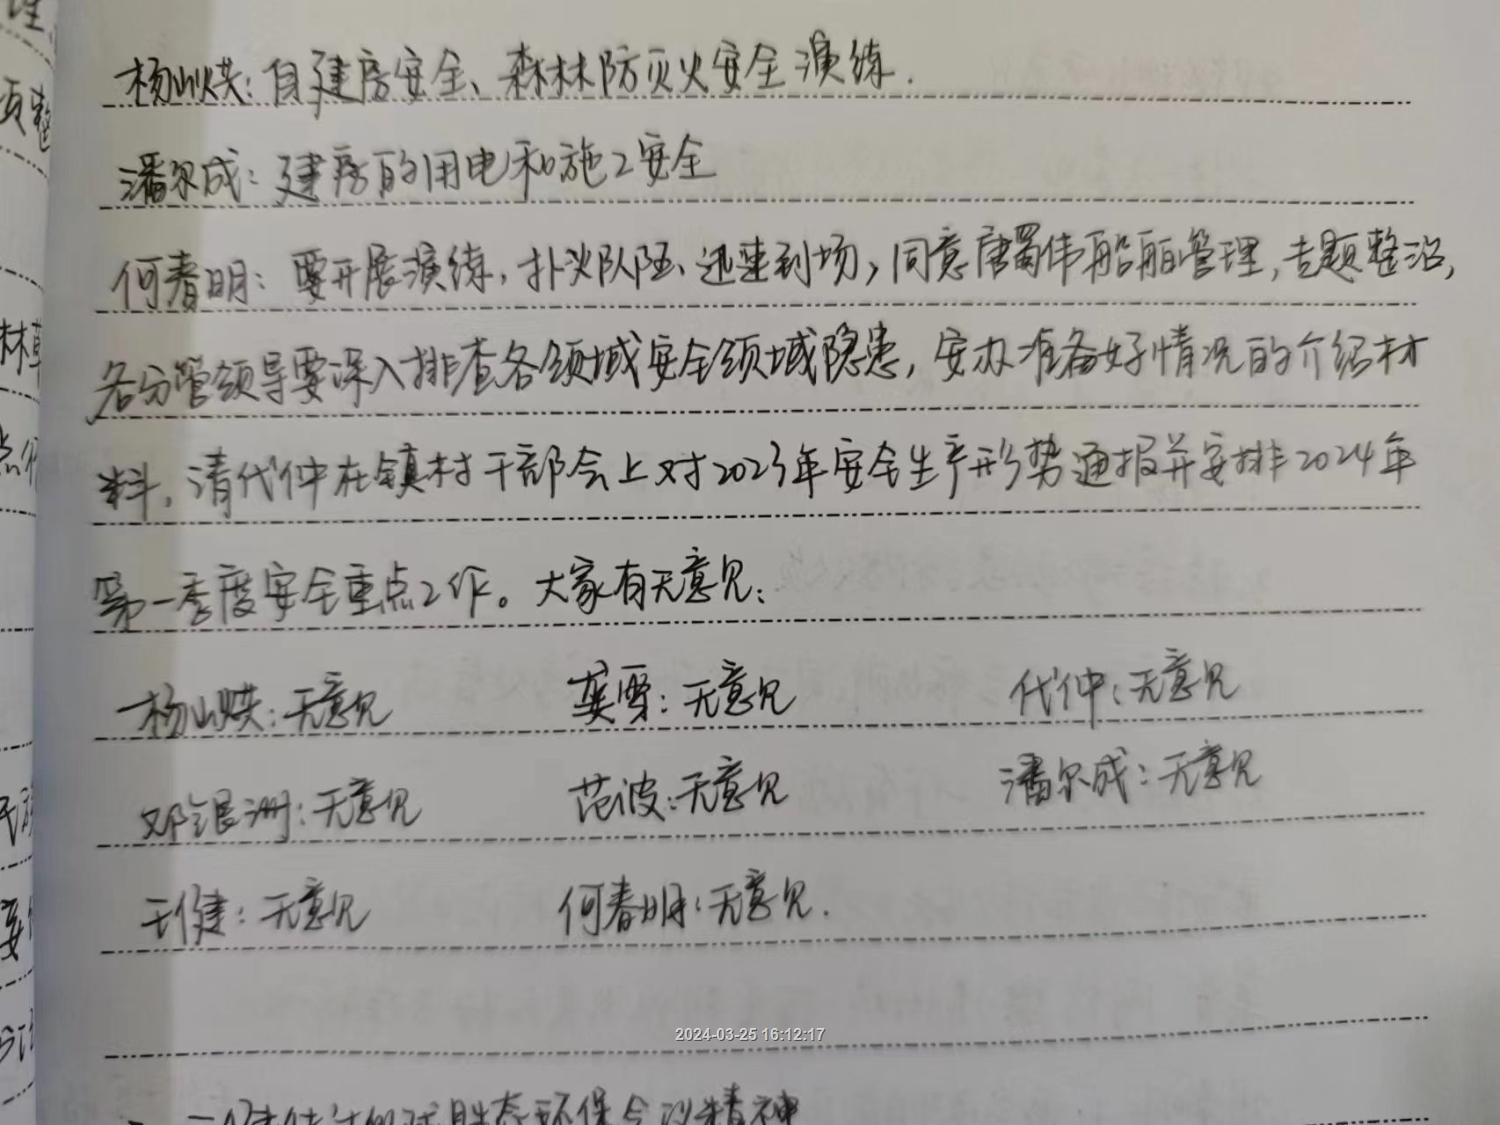 杨山烘：自建房安全、森林防灭火安全演练.
潘尔成：建房的用电和施工安全
何春明：要开展演练，扑火队伍、迅速到场，同意唐蜀伟船舶管理，专题整治，
各分管领导要深入排查各领域安全领域隐患，安办准备好情况的介绍材
料，请代仲在镇村干部会上对2023年安全生产形势通报并安排2024年
第一季度安全重点工作。大家有无意见：
杨山烘：无意见 龚雪：无意见 代仲：无意见
邓银洲：无意见 范波：无意见 潘尔成：无意见
王健：无意见 何春明：无意见.
2024-03-25 16:12:17
生态环保会议精神